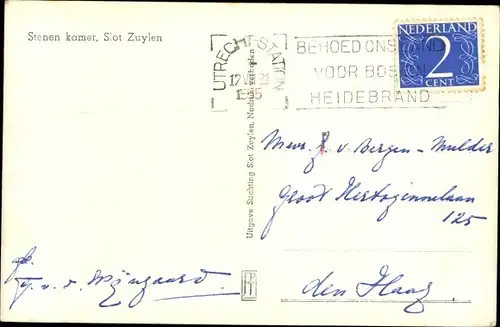 Stenen kamer, Slot Zuylen
UTRECHT-STATION
1955
BEHOED ONS LAND
VOOR BOS- EN
HEIDEBRAND
NEDERLAND
2
CENT
Uitgave Stichting Slot Zuylen, Nadruk verboden
Mevr. J. v. Bergen-Mulder
Groot Hertoginnelaan
125
den Haag
v. d. Wijngaard